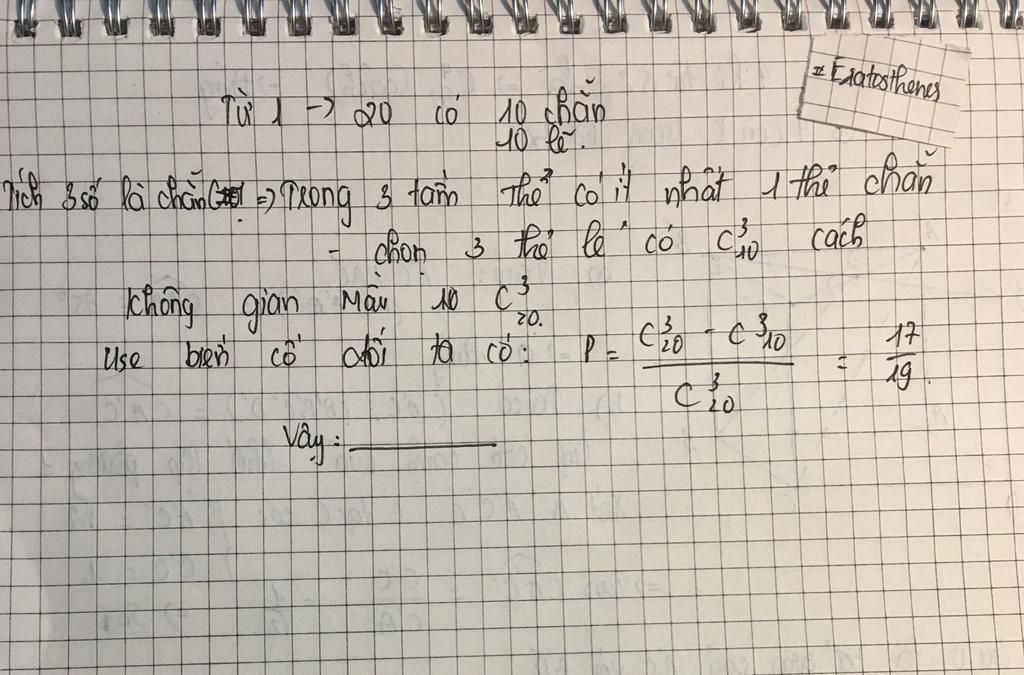 #Eratosthenes
Từ 1 -> 20 có 10 chẵn
10 lẻ.
Tích 3 số là chẵn => Trong 3 tấm thẻ có ít nhất 1 thẻ chẵn
- chọn 3 thẻ lẻ có C³₁₀ cách
Không gian mẫu là C³₂₀.
Use biến cố đối ta có: P = (C³₂₀ - C³₁₀) / C³₂₀ = 17/19.
Vậy: